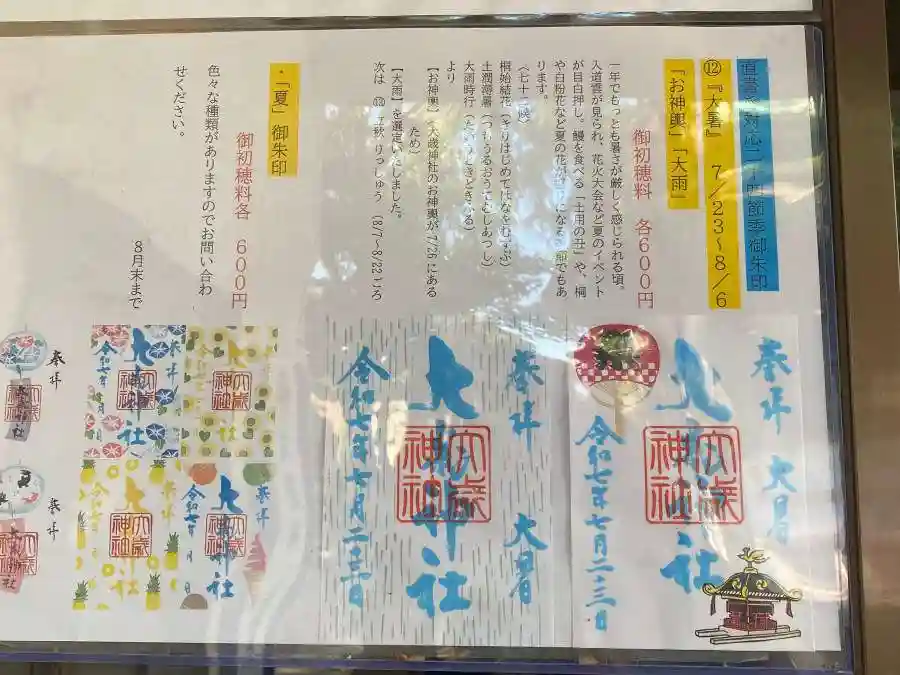 直書き対応二十四節季御朱印
⑫『大暑』 7/23~8/6
『お神輿』「大雨」
御初穂料 各600円
一年でもっとも暑さが厳しく感じられる頃。
入道雲が見られ、花火大会など夏のイベント
が目白押し。鰻を食べる「土用の丑」や、桐
や白粉花など夏の花が
になる
でもあ
ります。
(七十二候)
桐始結花(きりはじめてはなをむすぶ)
土潤溽暑(つちうるおうてむしあつし)
大雨時行(たいうときどきふる)
より
【お神輿】(大歳神社のお神輿が7/26にある
ため)
【大雨】を選定いたしました。
次は ⑬ 立秋 りっしゅう (8/7~8/22ごろ
・「夏」御朱印
御初穂料各 600円
色々な種類がありますのでお問い合わ
せください。
8月末まで
奉拝 大暑
大歳神社
大歳神社
令和七年七月二三日
奉拝 大暑
大歳神社
大歳神社
令和七年七月二三日
奉拝
大歳神社
令和七年 月 日
奉拝
大歳神社
令和七年 月 日
奉拝
奉拝